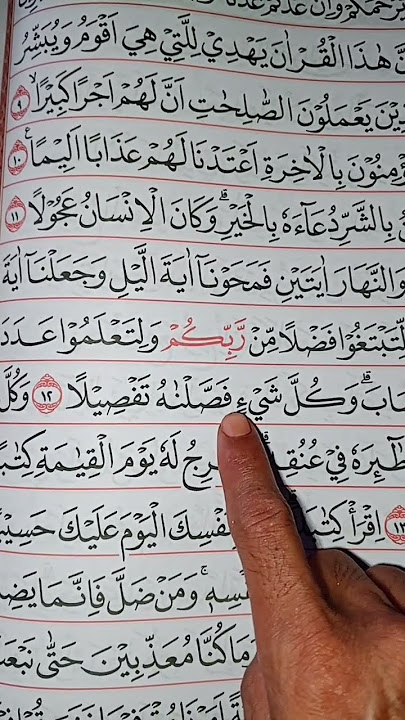 هٰذَا الْقُرْاٰنَ يَهْدِيْ لِلَّتِيْ هِيَ اَقْوَمُ وَيُبَشِّرُ
يَعْمَلُوْنَ الصّٰلِحٰتِ اَنَّ لَهُمْ اَجْرًا كَبِيْرًاۙ ٩
بِالْاٰخِرَةِ اَعْتَدْنَا لَهُمْ عَذَابًا اَلِيْمًا ࣖ ١٠
بِالشَّرِّ دُعَاۤءَهٗ بِالْخَيْرِۗ وَكَانَ الْاِنْسَانُ عَجُوْلًا ١١
وَالنَّهَارَ اٰيَتَيْنِ فَمَحَوْنَآ اٰيَةَ الَّيْلِ وَجَعَلْنَآ اٰيَةَ
لِّتَبْتَغُوْا فَضْلًا مِّنْ رَّبِّكُمْ وَلِتَعْلَمُوْا عَدَدَ
وَكُلَّ شَيْءٍ فَصَّلْنٰهُ تَفْصِيْلًا ١٢ وَكُلَّ
طٰۤىِٕرَهٗ فِيْ عُنُقِهٖ لَهٗ يَوْمَ الْقِيٰمَةِ كِتٰبًا
١٣ اِقْرَأْ الْيَوْمَ عَلَيْكَ حَسِيْبًا
وَمَنْ ضَلَّ فَاِنَّمَا
كُنَّا مُعَذِّبِيْنَ حَتّٰى نَبْعَثَ